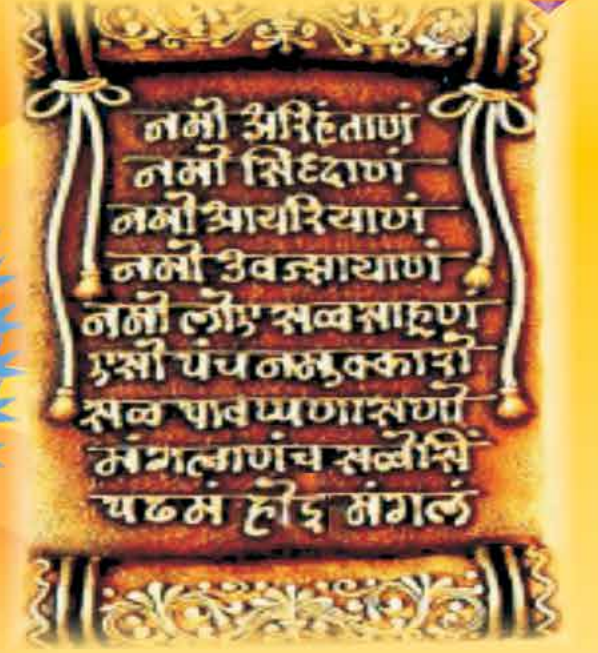 नमो अरिहंताणं
नमो सिध्दाणं
नमो आयरियाणं
नमो उवज्सायाणं
नमो लोए सव्वसाहूणं
एसो पंच नमुक्कारो
सव्व पावप्पणासणो
मंगलाणंच सव्वेसिं
पढमं होइ मंगलं